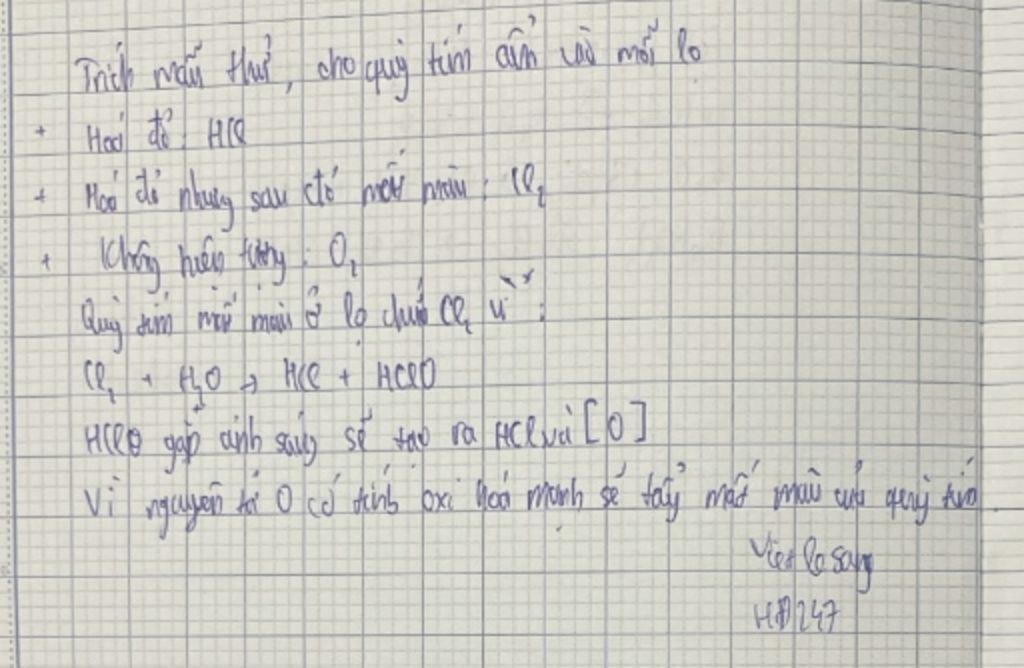 Trích mẫu thử, cho quỳ tím ẩm vào mỗi lọ
+ Hoá đỏ: HCl
+ Hoá đỏ nhưng sau đó mất màu: Cl₂
+ Không hiện tượng: O₂
Quỳ tím mất màu ở lọ chứa Cl₂ vì:
Cl₂ + H₂O → HCl + HClO
HClO gặp ánh sáng sẽ tạo ra HCl và [O]
Vì nguyên tử O có tính oxi hoá mạnh sẽ tẩy mất màu của quỳ tím
HĐ247